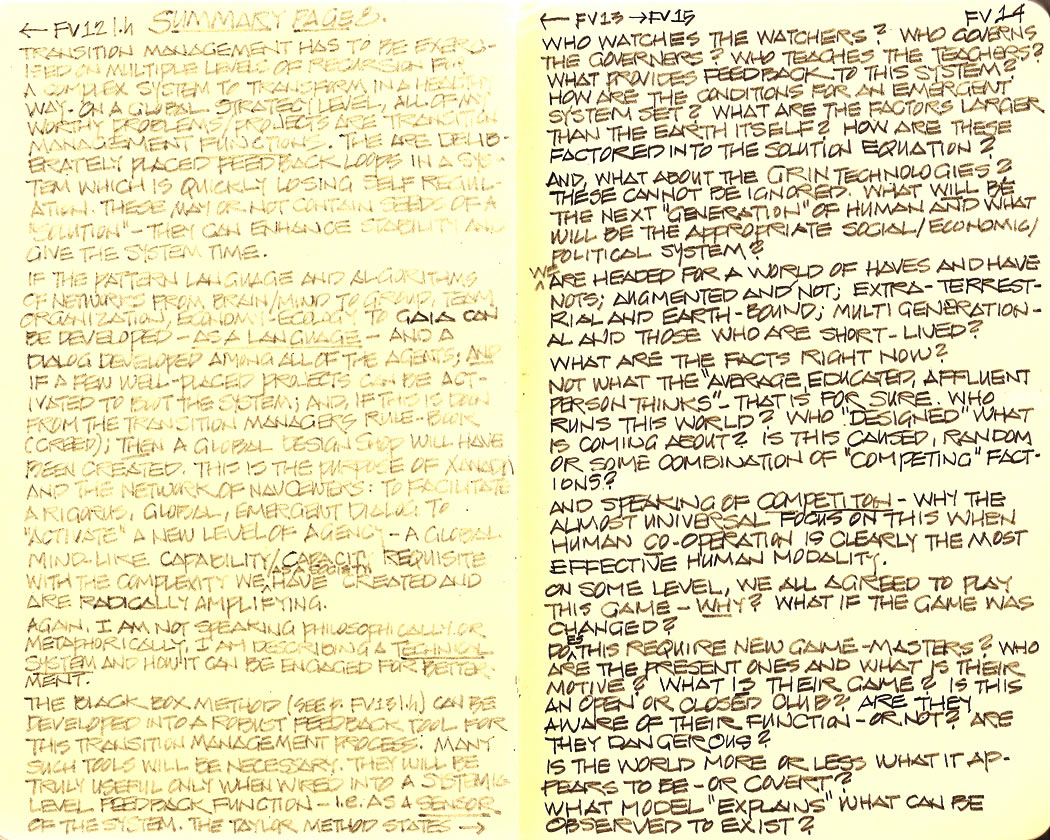 ← FV12 l.h SUMMARY PAGES.
TRANSITION MANAGEMENT HAS TO BE EXERC-
ISED ON MULTIPLE LEVELS OF RECURSION FOR
A COMPLEX SYSTEM TO TRANSFORM IN A HEALTHY
WAY. ON A GLOBAL STRATEGY LEVEL, ALL OF MY
WORTHY PROBLEMS/PROJECTS ARE TRANSITION
MANAGEMENT FUNCTIONS. THE ARE DELIB-
ERATELY PLACED FEEDBACK LOOPS IN A SYS-
TEM WHICH IS QUICKLY LOSING SELF REGUL-
ATION. THESE MAY OR NOT CONTAIN SEEDS OF A
"SOLUTION" - THEY CAN ENHANCE STABILITY AND
GIVE THE SYSTEM TIME.
IF THE PATTERN LANGUAGE AND ALGORITHMS
OF NETWORKS FROM BRAIN/MIND TO GROUP, TEAM,
ORGANIZATION, ECONOMY-ECOLOGY TO GAIA CAN
BE DEVELOPED - AS A LANGUAGE - AND A
DIALOG DEVELOPED AMONG ALL OF THE AGENTS; AND
IF A FEW WELL-PLACED PROJECTS CAN BE ACT-
IVATED TO BOOT THE SYSTEM; AND, IF THIS IS DONE
FROM THE TRANSITION MANAGERS RULE-BOOK
(CREED); THEN A GLOBAL DESIGN SHOP WILL HAVE
BEEN CREATED. THIS IS THE PURPOSE OF XANADU
AND THE NETWORK OF NAVCENTERS: TO FACILITATE
A RIGORUS, GLOBAL, EMERGENT DIALOG. TO
"ACTIVATE" A NEW LEVEL OF AGENCY - A GLOBAL
MIND-LIKE CAPABILITY/CAPACITY REQUISITE
WITH THE COMPLEXITY WE ^ AS SOCIETY HAVE CREATED AND
ARE RADICALLY AMPLIFYING.
AGAIN. I AM NOT SPEAKING PHILOSOPHICALLY OR
METAPHORICALLY, I AM DESCRIBING A TECHNICAL
SYSTEM AND HOW IT CAN BE ENGAGED FOR BETTER-
MENT.
THE BLACK BOX METHOD (SEE p. FV13 l.h) CAN BE
DEVELOPED INTO A ROBUST FEEDBACK TOOL FOR
THIS TRANSITION MANAGEMENT PROCESS. MANY
SUCH TOOLS WILL BE NECESSARY. THEY WILL BE
TRULY USEFUL ONLY WHEN WIRED INTO A SYSTEMIC
LEVEL FEEDBACK FUNCTION - i.e. AS A SENSOR
OF THE SYSTEM. THE TAYLOR METHOD STATES →
← FV13 → FV15 FV14
WHO WATCHES THE WATCHERS? WHO GOVERNS
THE GOVERNERS? WHO TEACHES THE TEACHERS?
WHAT PROVIDES FEEDBACK TO THIS SYSTEM?
HOW ARE THE CONDITIONS FOR AN EMERGENT
SYSTEM SET? WHAT ARE THE FACTORS LARGER
THAN THE EARTH ITSELF? HOW ARE THESE
FACTORED INTO THE SOLUTION EQUATION?
AND, WHAT ABOUT THE GRIN TECHNOLOGIES?
THESE CANNOT BE IGNORED. WHAT WILL BE
THE NEXT "GENERATION" OF HUMAN AND WHAT
WILL BE THE APPROPRIATE SOCIAL/ECONOMIC/
POLITICAL SYSTEM?
^WE ARE HEADED FOR A WORLD OF HAVES AND HAVE
NOTS; AUGMENTED AND NOT; EXTRA-TERREST-
RIAL AND EARTH-BOUND; MULTI GENERATION-
AL AND THOSE WHO ARE SHORT-LIVED?
WHAT ARE THE FACTS RIGHT NOW?
NOT WHAT THE "AVERAGE, EDUCATED, AFFLUENT
PERSON THINKS" - THAT IS FOR SURE. WHO
RUNS THIS WORLD? WHO "DESIGNED" WHAT
IS COMING ABOUT? IS THIS CAUSED, RANDOM
OR SOME COMBINATION OF "COMPETING" FACT-
IONS?
AND SPEAKING OF COMPETITON - WHY THE
ALMOST UNIVERSAL FOCUS ON THIS WHEN
HUMAN CO-OPERATION IS CLEARLY THE MOST
EFFECTIVE HUMAN MODALITY.
ON SOME LEVEL, WE ALL AGREED TO PLAY
THIS GAME - WHY? WHAT IF THE GAME WAS
CHANGED?
DOES THIS REQUIRE NEW GAME-MASTERS? WHO
ARE THE PRESENT ONES AND WHAT IS THEIR
MOTIVE? WHAT IS THEIR GAME? IS THIS
AN OPEN OR CLOSED CLUB? ARE THEY
AWARE OF THEIR FUNCTION - OR NOT? ARE
THEY DANGEROUS?
IS THE WORLD MORE OR LESS WHAT IT AP-
PEARS TO BE - OR COVERT?
WHAT MODEL "EXPLAINS" WHAT CAN BE
OBSERVED TO EXIST?